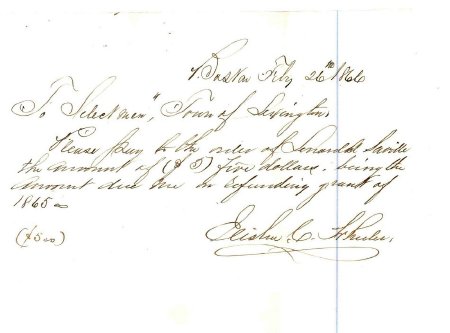 Boston Feby 26th 1866
To Selectmen", Town of Lexington,
Please pay to the order of Leonard A Saville
the amount of ($5) Five dollars, being the
amount due me in refunding grant of
1865
($5 00)
Elisha C. Wheeler,